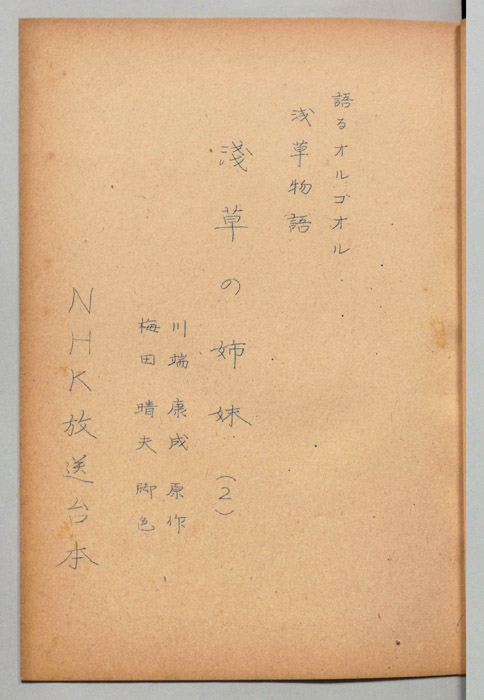 語るオルゴオル
浅草物語
淺草の姉妹（2）
川端康成 原作
梅田晴夫 脚色
NHK放送台本